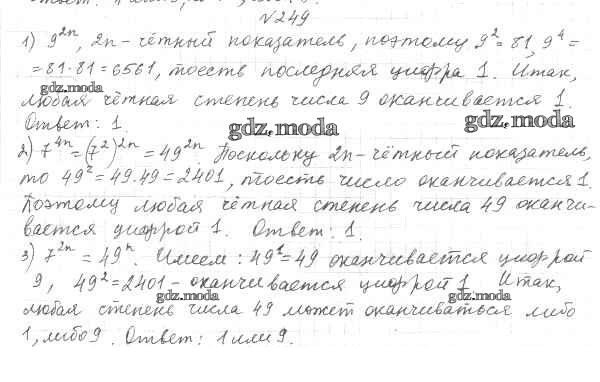 №249
1) 9^2n, 2n - чётный показатель, поэтому 9^2 = 81, 9^4 =
= 81·81 = 6561, тоесть последняя цифра 1. Итак,
gdz.moda
любая чётная степень числа 9 оканчивается 1.
Ответ: 1.
gdz.moda gdz.moda
2) 7^4n = (7^2)^2n = 49^2n. Поскольку 2n - чётный показатель,
то 49^2 = 49·49 = 2401, тоесть число оканчивается 1.
Поэтому любая чётная степень числа 49 оканчи-
вается цифрой 1. Ответ: 1.
3) 7^2n = 49^n. Имеем: 49^1 = 49 оканчивается цифрой
9, 49^2 = 2401 - оканчивается цифрой 1. Итак,
gdz.moda gdz.moda
любая степень числа 49 может оканчиваться либо
1, либо 9. Ответ: 1 или 9.